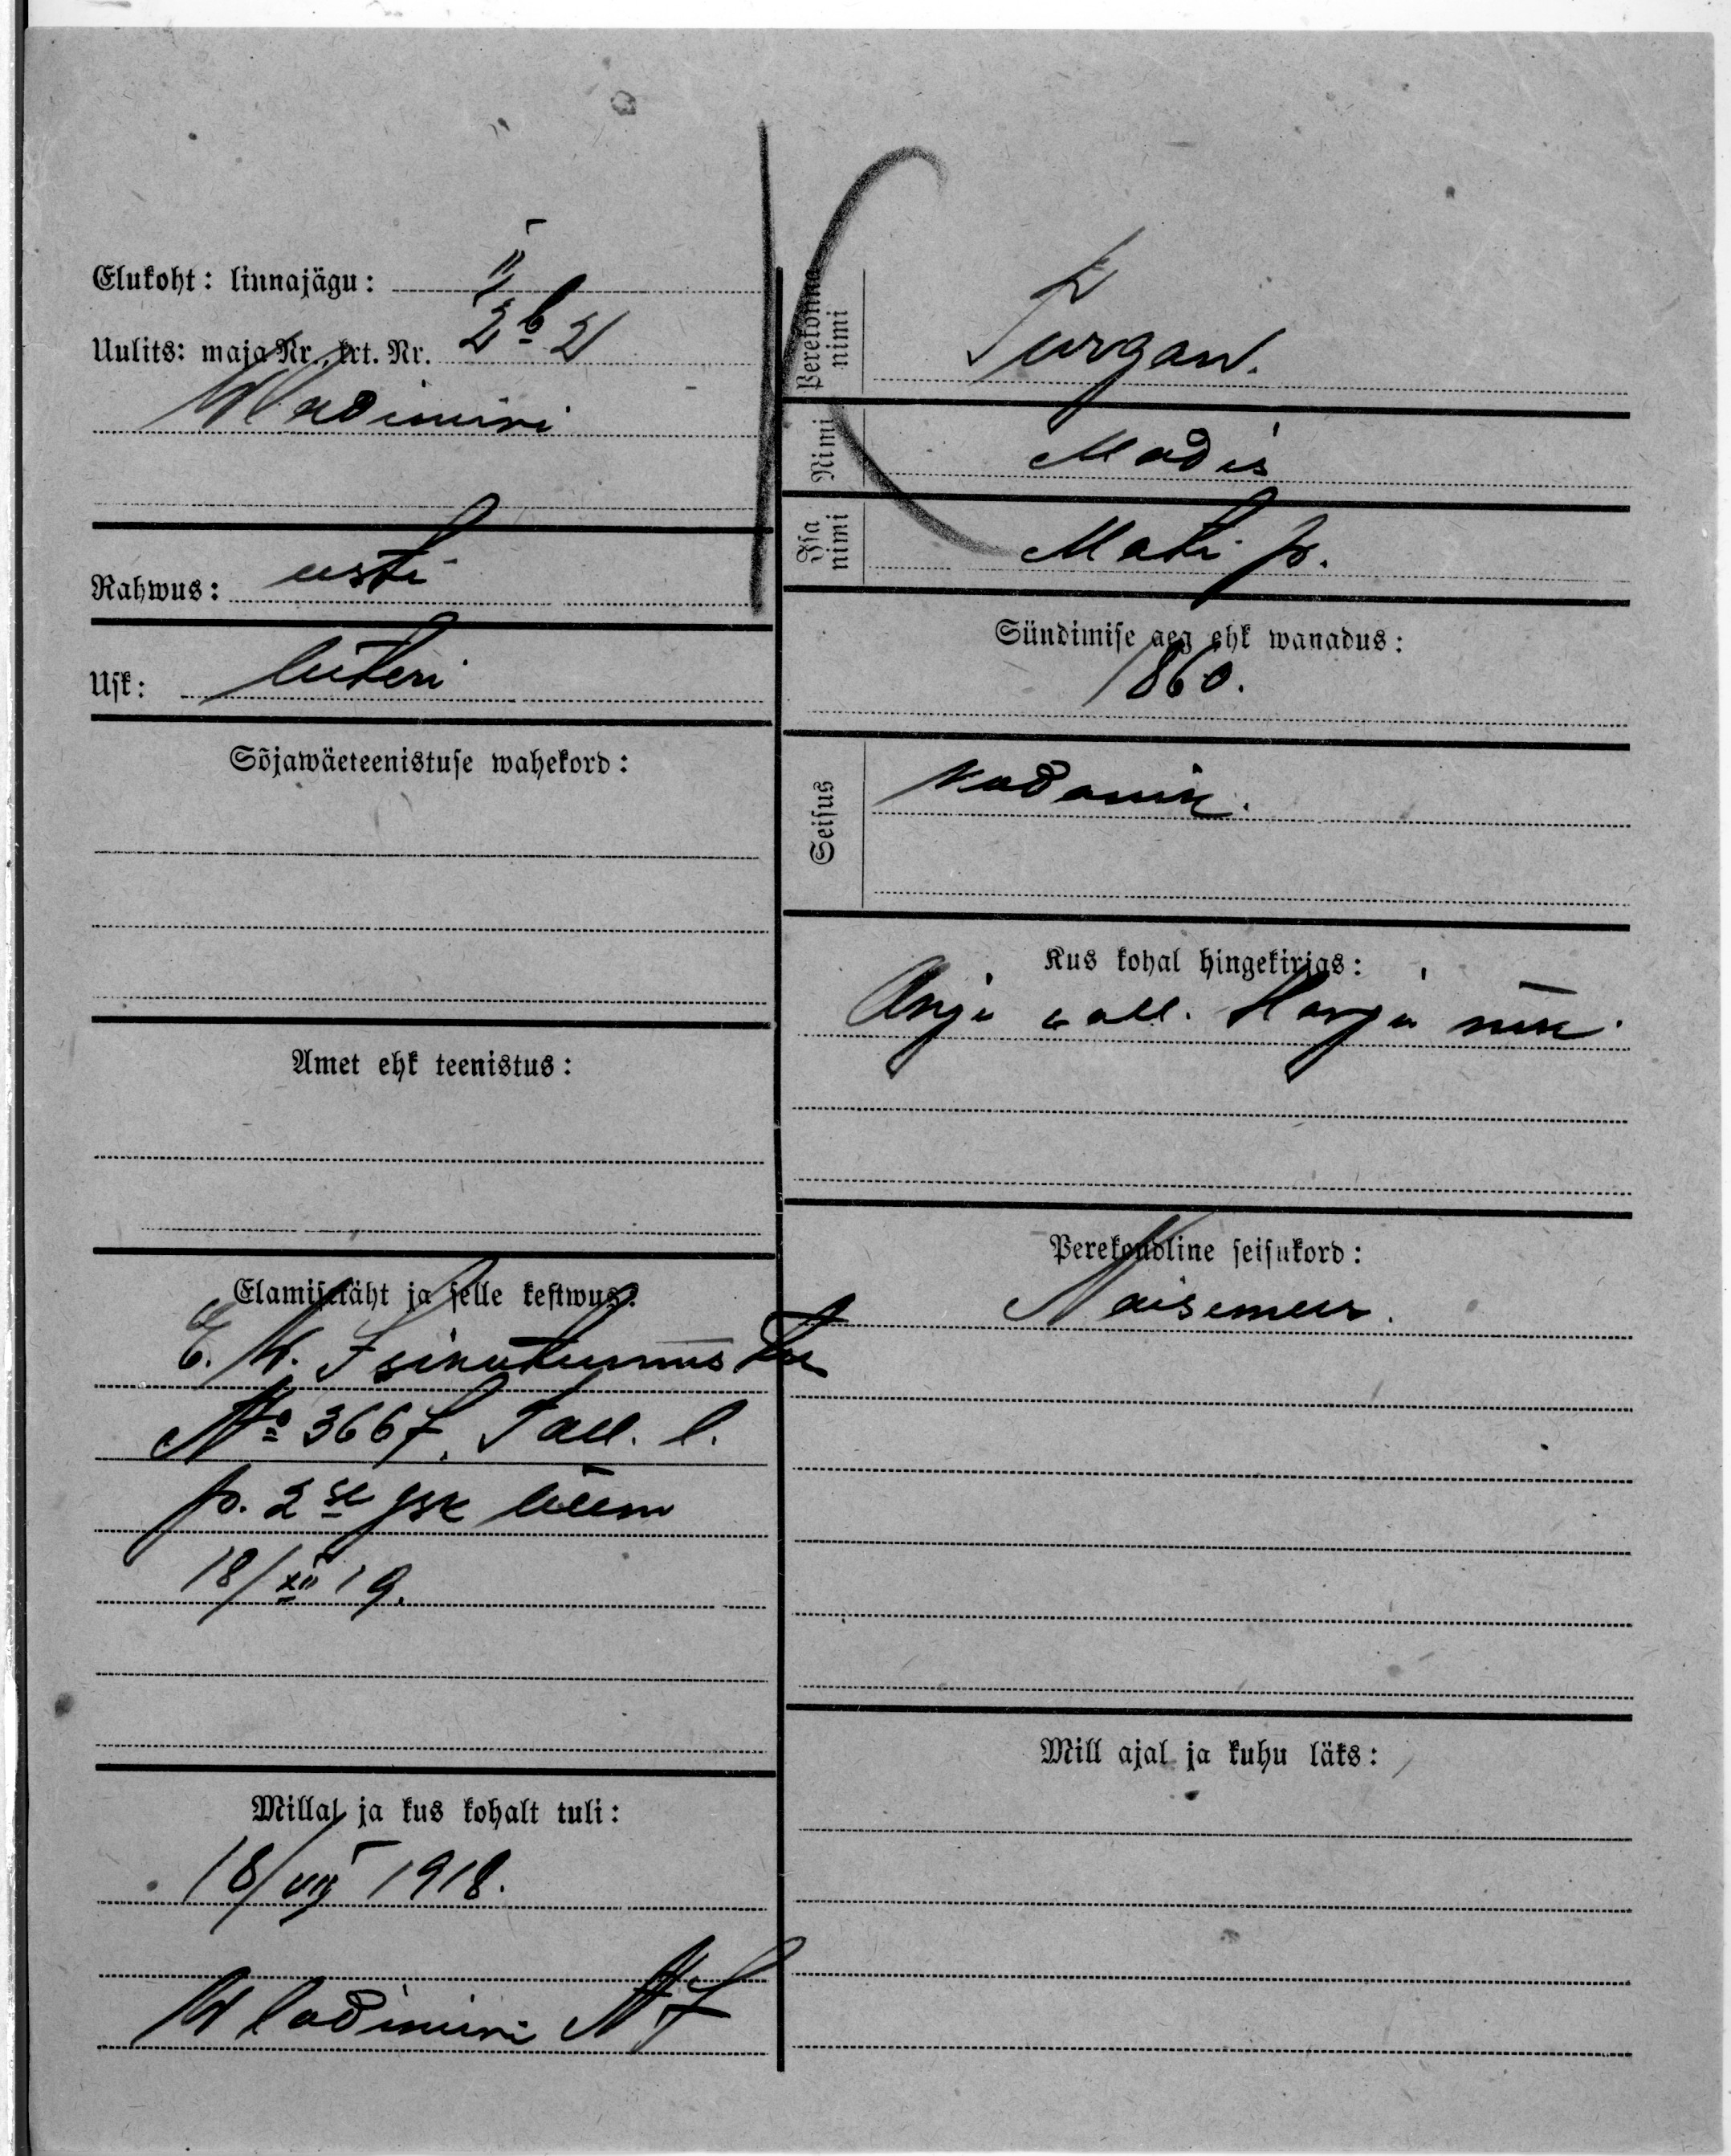 Elukoht: linnajägu: II
Uulits: maja Nr., krt. Nr. 2b 21
Wladimiri
Rahwus: eesti
Usk: luteri
Sõjawäeteenistuse wahekord:
Amet ehk teenistus:
Elamisetäht ja selle kestwus:
E. W. Isikutunnistus
№ 3667. Tall. l.
p. 2se jsk ülem
18/XII 19.
Millal ja kus kohalt tuli:
18/VIII 1918.
Wladimiri № 7
Perekonna nimi
Turgan.
Nimi Madis
Isa nimi Mati p.
Sündimise aeg ehk wanadus:
1860.
Seisus kodanik.
Kus kohal hingekirjas:
Anja wall. Harju mk.
Perekondline seisukord:
Naisemees.
Mill ajal ja kuhu läks: